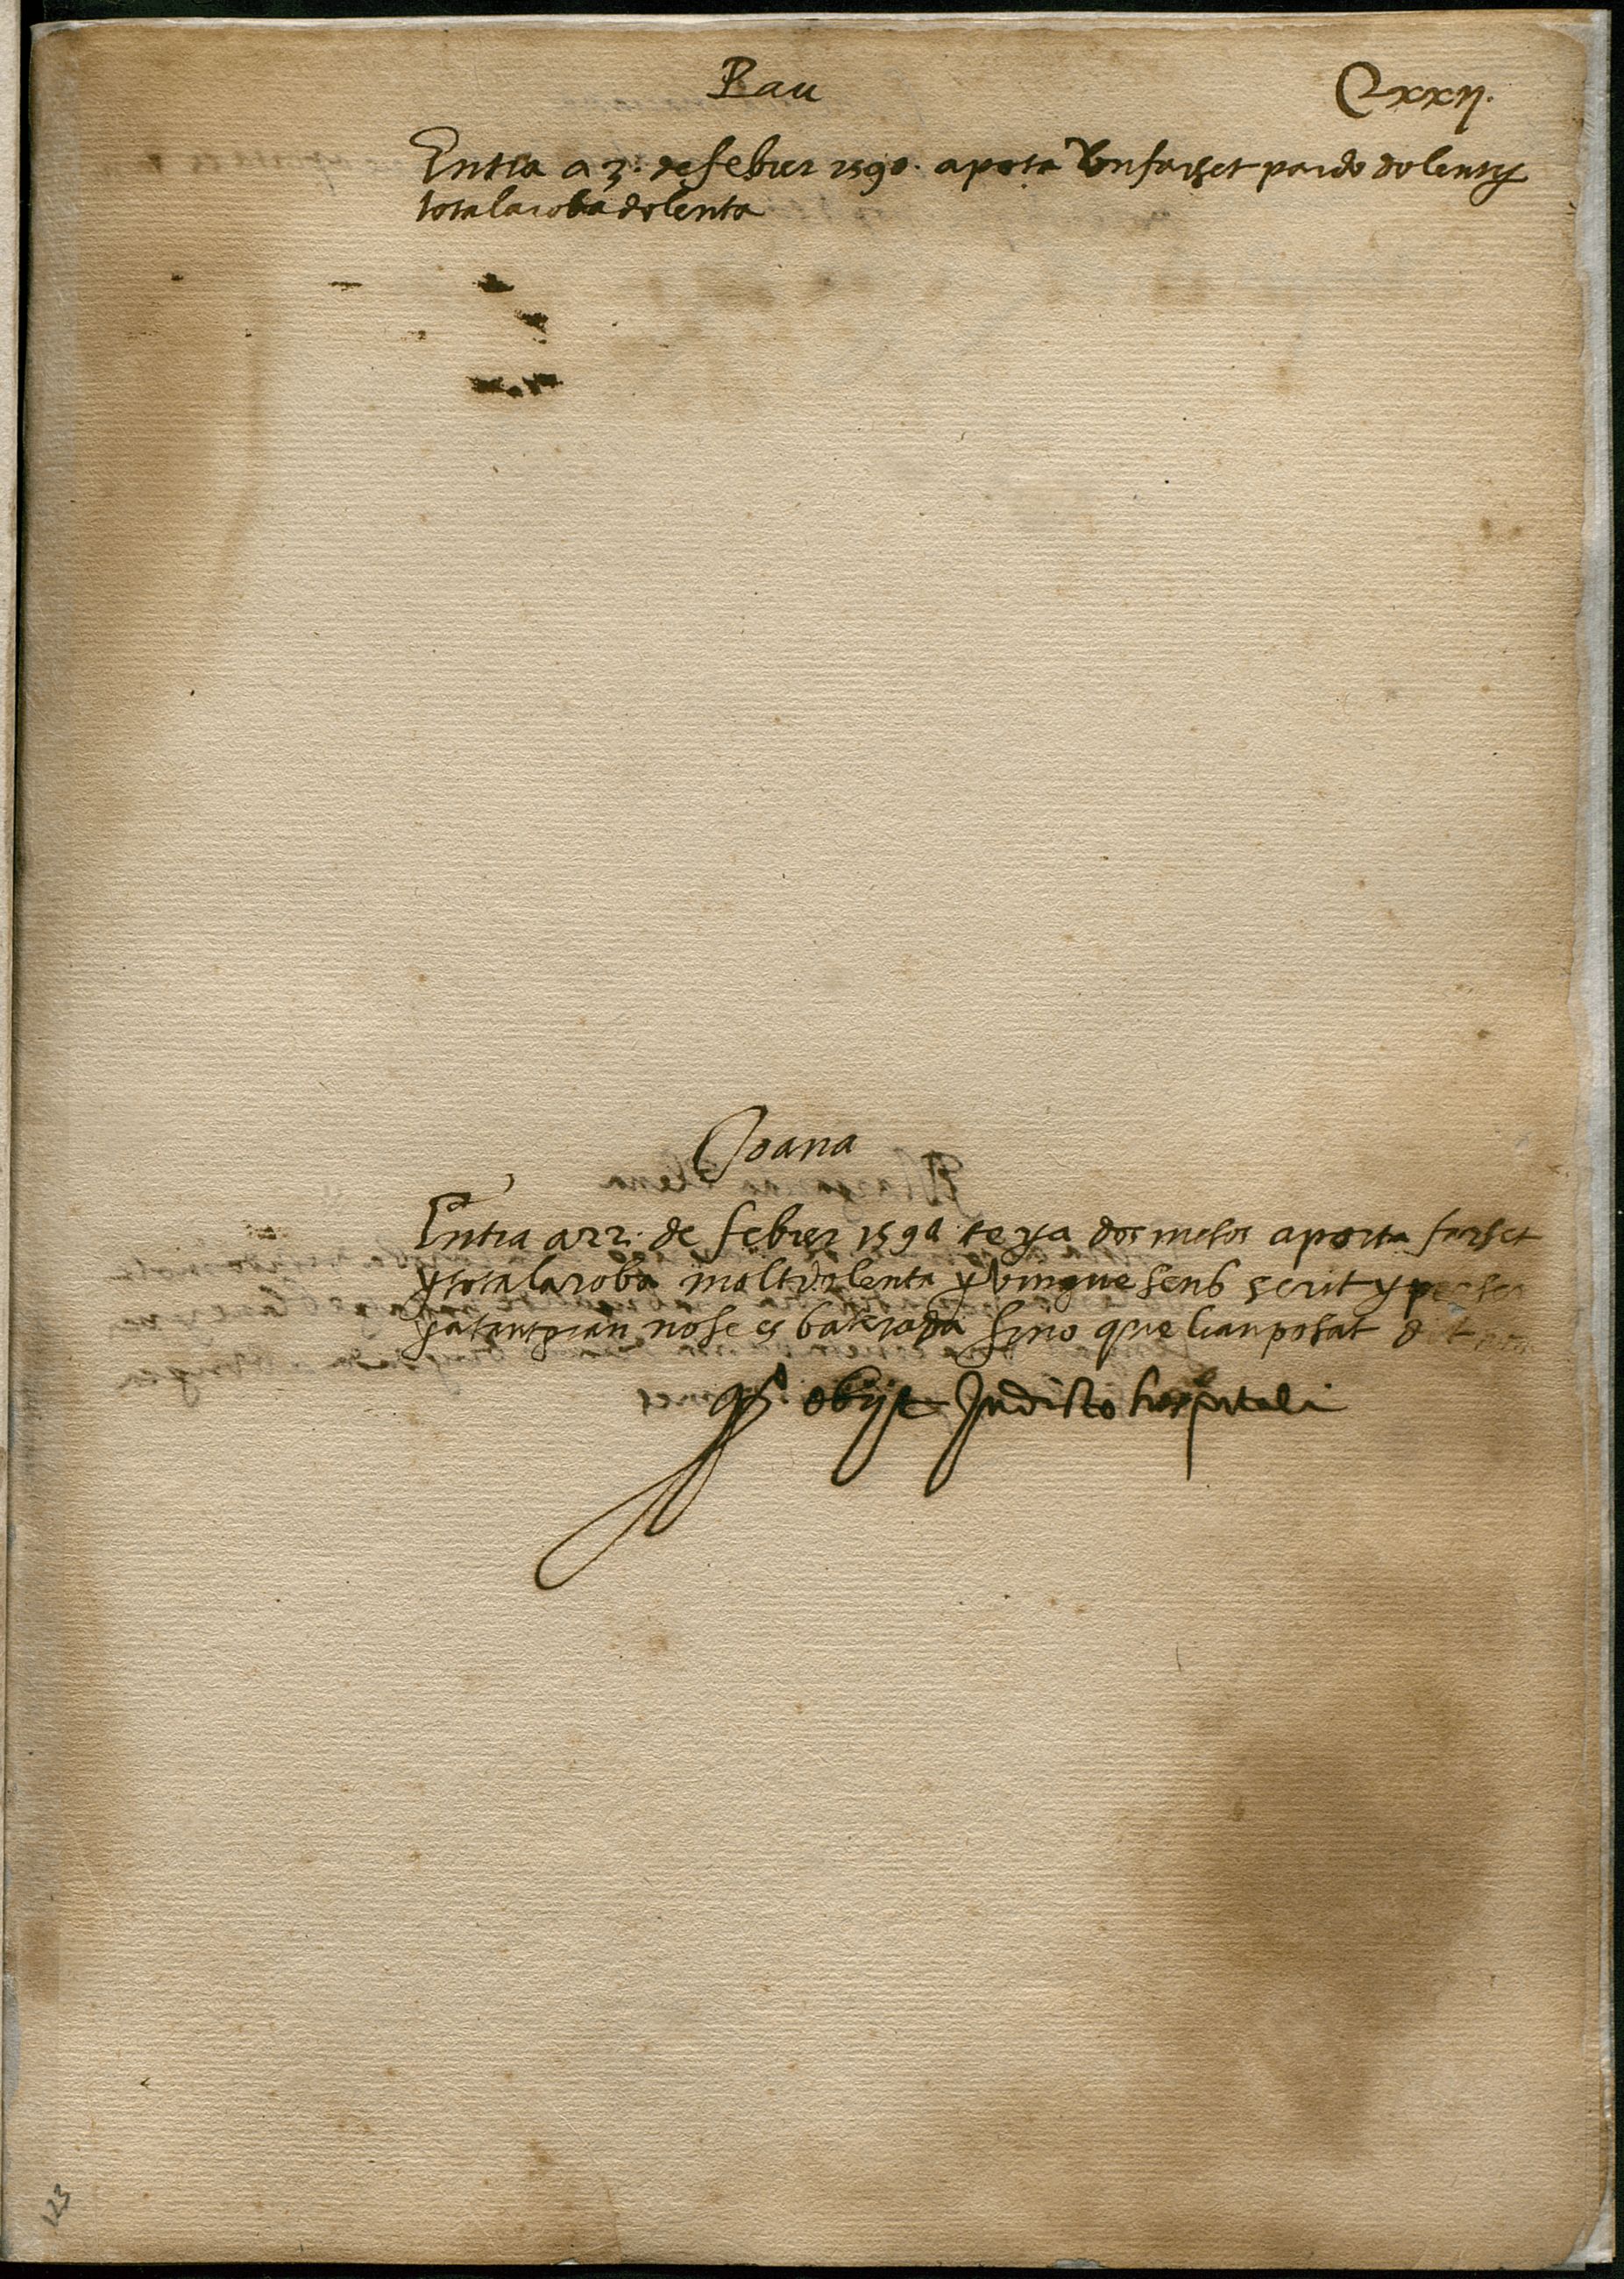 Pau
Cxxij.
Entra a 3. de febrer 1598. aporta Un farset pardo dolent y
tota la roba dolenta
Joana
Entra a 22. de febrer 1598 te ya dos mesos aporta farset
y tota la roba molt dolenta y vingue sens scrit y per ser
ja tant gran no se es batejada sino que li an posat dit nom
qᵒ obijt In dicto hospitali
123